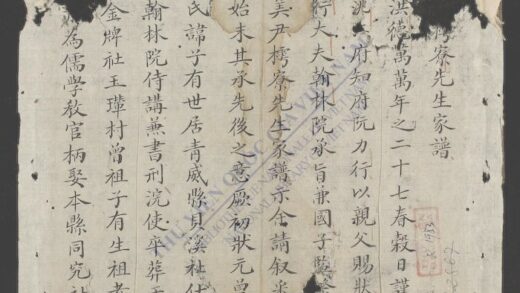 寮先生家譜
洪德萬萬年之二十七春穀日謹
府知府阮力行以親父賜狀
行大夫翰林院承旨兼國子監
美尹樗寮先生家譜示余請叙
始末其承先後之意厥初狀元曾
氏諱子有世居青威縣貝溪社仕
翰林院侍講兼書刑浣使卒葬
金牌社玉璍村曾祖子有生祖考
為儒學敎官柄娶本縣同究社
THƯ VIỆN QUỐC GIA VIỆT NAM
NATIONAL LIBRARY OF VIETNAM